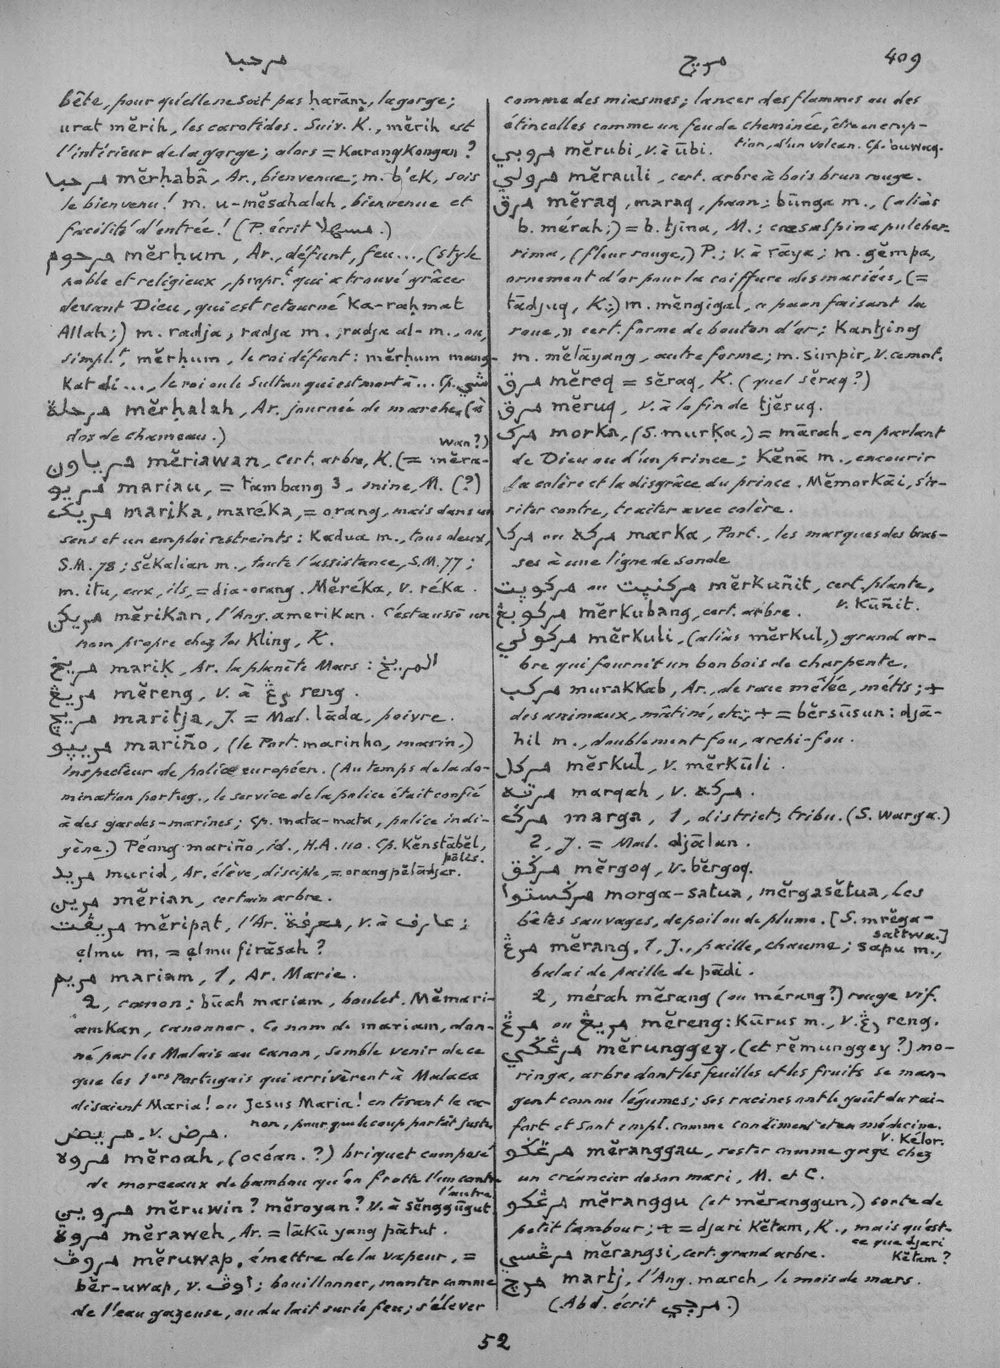 مرحبا
مرچ
409
bête, pour qu'elle ne soit pas ḥarām, la gorge;
urat mĕrih, les carotides. Suiv. K., mĕrih est
l'intérieur de la gorge; alors = Karangkongan?
مرحبا mĕrḥabā, Ar., bienvenue; m. b'eK, sois
le bienvenu! m. u-mĕsahalah, bienvenue et
facilité d'entrée! (P. écrit مسهلا.)
مرحوم mĕrḥum, Ar., défunt, feu..., (style
noble et religieux, propr.t qui a trouvé grâce
devant Dieu, qui est retourné Ka-raḥmat
Allah;) m. radja, radja m., radja al-m., ou,
simpl.t, mĕrḥum, le roi défunt: mĕrḥum mang-
Kat di..., le roi ou le Sultan qui est mort à... Cp.
مرحلة mĕrḥalah, Ar. journée de marche, (à
dos de chameau.)
مرياون mĕriawan, cert. arbre, K. (= mĕra-
wan?)
مريو mariau, = tambang 3, mine, M. (?)
مريک mariKa, maréKa, = orang, mais dans un
sens et un emploi restreints: Kadua m., tous deux,
S.M. 78; sĕKalian m., toute l'assistance, S.M. 77;
m. itu, eux, ils, = dia-orang. MĕréKa, v. réKa.
مريكن mĕriKan, l'Ang. ameriKan. C'est aussi un
nom propre chez les Kling, K.
مريخ mariḲ, Ar. la planète Mars: المريخ
مريڠ mĕreng, v. à رڠ reng.
مريچ maritja, J. = Mal. lāda, poivre.
مريڽو mariño, (le Port. marinho, marin,)
inspecteur de police européen. (Au temps de la do-
mination portug., le service de la police était confié
à des gardes-marines; Cp. mata-mata, police indi-
gène.) Péang mariño, id., H.A. 110. Cp. Kĕnstābĕl,
pōlès.
مريد murid, Ar. élève, disciple, = orang pĕlādjar.
مرين mĕrian, certain arbre.
مريڤت mĕripat, l'Ar. معرفة, v. à عارف;
ẹlmu m. = ẹlmu firāsah?
مريم mariam, 1, Ar. Marie.
2, canon; būah mariam, boulet. Mĕmari-
amKan, canonner. Ce nom de mariam, don-
né par les Malais au canon, semble venir de ce
que les 1ers Portugais qui arrivèrent à Malaca
disaient Maria! ou Jesus Maria! en tirant le ca-
non, pour que le coup portât juste.
مريض, v. مرض.
مروه mĕroah, (océan.?) briquet composé
de morceaux de bambou qu'on frotte l'un contre
l'autre.
مروين mĕruwin? mĕroyan? v. à sĕnggūgut
مروة mĕraweh, Ar. = lāKū yang pātut.
مروڤ mĕruwap, émettre de la vapeur, =
bĕr-uwap, v. اوڤ; bouillonner, monter comme
de l'eau gazeuse, ou du lait sur le feu; s'élever
comme des miasmes; lancer des flammes ou des
étincelles comme un feu de cheminée, être en érup-
tion, d'un volcan. Cp. ouwaq.
مروبي mĕrubi, v. à ūbi.
مرولي mĕrauli, cert. arbre à bois brun rouge.
مرق mĕraq, maraq, paon; būnga m., (aliàs
b. mérah;) = b. tjina, M.; cæsalpina pulcher-
rima, (fleur rouge,) P.; v. à rāya; m. gĕmpa,
ornement d'or pour la coiffure des mariées, (=
tādjuq, K.;) m. mĕngigal, « paon faisant la
roue, » cert. forme de bouton d'or; Kantjing
m. mĕlāyang, autre forme; m. simpir, v. ce mot.
مرق mĕreq = sĕraq, K. (quel sĕraq?)
مرق mĕruq, v. à la fin de tjĕruq.
مرک morKa, (S. murKa,) = mārah, en parlant
de Dieu ou d'un prince; Kĕnā m., encourir
la colère et la disgrâce du prince. MĕmorKāi, s'ir-
riter contre, traiter avec colère.
مركا ou مركه marKa, Port., les marques des bras-
ses à une ligne de sonde
مركويت ou مركنيت mĕrKuñit, cert. plante,
v. Kūñit.
مركوبڠ mĕrKubang, cert. arbre.
مركولي mĕrKuli, (aliàs mĕrKul,) grand ar-
bre qui fournit un bon bois de charpente.
مركب muraKKab, Ar., de race mêlée, métis; +
des animaux, mâtiné, etc; + = bĕrsūsun: djā-
hil m., doublement fou, archi-fou.
مركل mĕrKul, v. mĕrKūli.
مرقه marqah, v. مركه.
مرݢ marga, 1, district, tribu. (S. warga.)
2, J. = Mal. djālan.
مرݢق mĕrgoq, v. bĕrgoq.
مرݢستوا morga-satua, mĕrgasĕtua, les
bêtes sauvages, de poil ou de plume. [S. mrĕga-
sattwa.]
مرڠ mĕrang, 1, J., paille, chaume; sapu m.,
balai de paille de pādi.
2, mérah mĕrang (ou mérang?) rouge vif.
مرڠ ou مريڠ mĕreng: Kūrus m., v. رڠ reng.
مرڠݢي mĕrunggey, (et rĕmunggey?) mo-
ringa, arbre dont les feuilles et les fruits se man-
gent comme légumes; ses racines ont le goût du rai-
fort et sont empl. comme condiment et en médecine.
v. Kélor.
مرڠݢو mĕranggau, rester comme gage chez
un créancier de son mari, M. et C.
مرڠݢو mĕranggu (et mĕranggun,) sorte de
petit tambour; + = djari Kĕtam, K., mais qu'est-
ce que djari
Kĕtam?
مرڠسي mĕrangsi, cert. grand arbre.
مرچ martj, l'Ang. march, le mois de mars.
(Abd. écrit مرچي.)
52